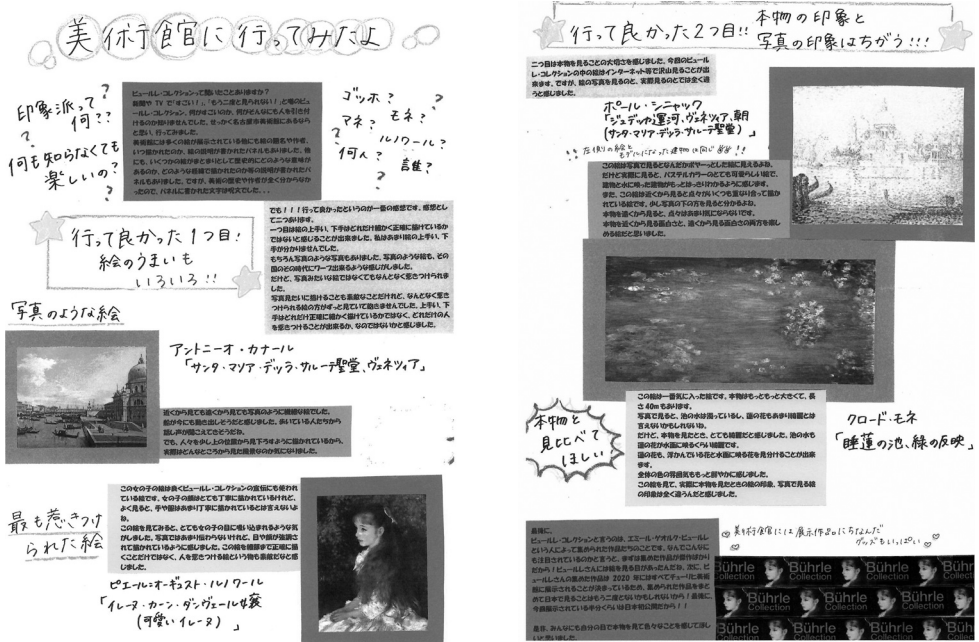 美術館に行ってみたよ
印象派って
何??
?
何も知らなくても
楽しいの?
?
ビュールレ・コレクションって聞いたことありますか?
新聞や TV で「すごい!」、「もう二度と見られない!」と噂のビュ
ールレ・コレクション。何がすごいのか、何がそんなにも人を引き付
けるのか知りませんでした。せっかく名古屋市美術館にあるなら
と思い、行ってみました。
美術館には多くの絵が展示されている他にも絵の題名や作者、
いつ描かれたのか、絵の説明が書かれたパネルもありました。他
にも、いくつかの絵がまとまりとして歴史的にどのような意味が
あるのか、どのような経緯で描かれたのか等の説明が書かれたパ
ネルもありました。ですが、美術の歴史や作者が全く分からなか
ったので、パネルに書かれた文字は呪文でした...
ゴッホ?
?
モネ?
アネ?
?
ルノワール?
何人?
誰?
行って良かった1つ目!
絵のうまいも
いろいろ!!
でも!!!行って良かったというのが一番の感想です。感想とし
て二つあります。
一つ目は絵の上手い、下手はどれだけ細かく正確に描けているか
ではないと感じることが出来ました。私はあまり絵の上手い、下
手が分かりませんでした。
もちろん写真のような写真もありました。写真のような絵も、その
国のその時代にワープ出来るような感じがしました。
だけど、写真みたいな絵ではなくてもなんとなく惹きつけられま
した。
写真見たいに描けることも素敵なことだけれど、なんとなく惹き
つけられる絵の方がずっと見ていて飽きませんでした。上手い、下
手はどれだけ正確に細かく描けているかではなく、どれだけの人
を惹きつけることが出来るか、なのではないかと感じました。
写真のような絵
アントニーオ・カナール
「サンタ・マリア・デッラ・サルーテ聖堂、ヴェネツィア」
近くから見ても遠くから見ても写真のように繊細な絵でした。
船が今にも動き出しそうだと感じました。歩いている人たちから
話し声が聞こえてきそうだね。
でも、人々を少し上の位置から見下ろすように描かれているから、
実際はどんなところから見た風景なのか気になりました。
最も惹きつけ
られた絵
この女の子の絵は良くビュールレ・コレクションの宣伝にも使われ
ている絵です。女の子の顔はとても丁寧に描かれているけれど、
よく見ると、手や服はあまり丁寧に描けているとは言えないよ
ね。
この絵を見てみると、とても女の子の目に吸い込まれるような気
がしました。写真ではあまり伝わらないけれど、目や髪が強調さ
れて描かれているように感じました。この絵を細部まで正確に描
くことだけではなく、人を惹きつける絵という物も素敵だなと感
じました。
ピエール=オーギュスト・ルノワール
「イレーヌ・カーン・ダンヴェール嬢
(可愛いイレーヌ)」
行って良かった2つ目!!
本物の印象と
写真の印象はちがう!!!
二つ目は本物を見ることの大切さを感じました。今回のビュール
レ・コレクションの中の絵はインターネット等で沢山見ることが出
来ます。ですが、絵の写真を見るのと、実際見るのとでは全く違
うと感じました。
ポール・シニャック
「ジュデッカ運河、ヴェネツィア、朝
(サンタ・マリア・デッラ・サルーテ聖堂)」
この絵は写真で見るとなんだかボヤーっとした絵に見えるよね。
だけど実際に見ると、パステルカラーのとても可愛らしい絵で、
建物と水に映った建物がもっとはっきりわかるように感じます。
また、この絵は近くから見ると点々がいくつも重なり合って描か
れている絵です。少し写真の下の方を見ると分かるよね。
本物を遠くから見ると、点々はあまり気にならないです。
本物を近くから見る面白さと、遠くから見る面白さの両方を楽し
める絵だと思いました。
本物と
見比べて
ほしい
この絵は一番気に入った絵です。本物はもっともっと大きくて、長
さ40mもあります。
写真で見ると、池の水は濁っているし、蓮の花もあまり綺麗とは
言えないかもしれないね。
だけど、本物を見たとき、とても綺麗だと感じました。池の水も
蓮の花が水面に映るくらい綺麗です。
蓮の花も、浮かんでいる花と水面に映る花を見分けることが出来
ます。
全体の色の雰囲気ももっと鮮やかに感じました。
この絵を見て、実際に本物を見たときの絵の印象、写真で見る絵
の印象は全く違うんだと感じました。
クロード・モネ
「睡蓮の池、緑の反映」
最後に、
ビュールレ・コレクションと言うのは、エミール・ゲオルク・ビュールレ
という人によって集められた作品たちのことです。なんでこんなに
も注目されているのかと言うと、まずは集めた作品が傑作ばかり
だから!ビュールレさんには絵を見る目があったんだね。次に、ビ
ュールレさんの集めた作品は 2020 年にはすべてチューリヒ美術
館に展示されることが決まっているため、集められた作品をまと
めて日本で見ることはもう二度とないかもしれないから!最後に、
今回展示されている半分くらいは日本初公開だから!!
是非、みんなにも自分の目で本物を見て色々なことを感じてほし
いと思いました。
美術館には展示作品にちなんだ
グッズもいっぱい
Bührle
Collection
Bührle
Collection
Bührle
Collection
Bührle
Collection
Bührle
Collection